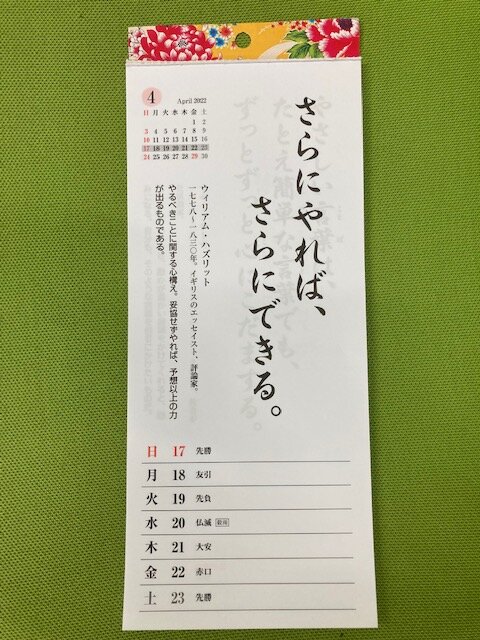 4
April 2022
日 月 火 水 木 金 土
1 2
3 4 5 6 7 8 9
10 11 12 13 14 15 16
17 18 19 20 21 22 23
24 25 26 27 28 29 30
さらにやれば、
さらにできる。
ウィリアム・ハズリット
一七七八〜一八三〇年。イギリスのエッセイスト、評論家。
やるべきことに関する心構え。妥協せずやれば、予想以上の力
が出るものである。
日 17 先勝
月 18 友引
火 19 先負
水 20 仏滅 穀雨
木 21 大安
金 22 赤口
土 23 先勝